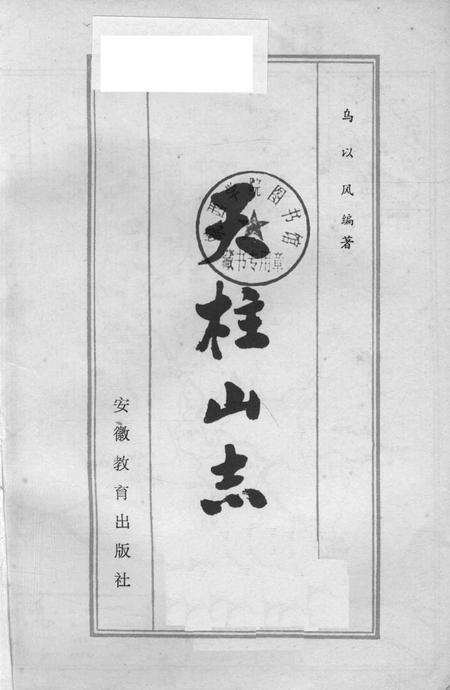 乌以风编著
天柱山志
安徽教育出版社
院图书馆
藏书专用章